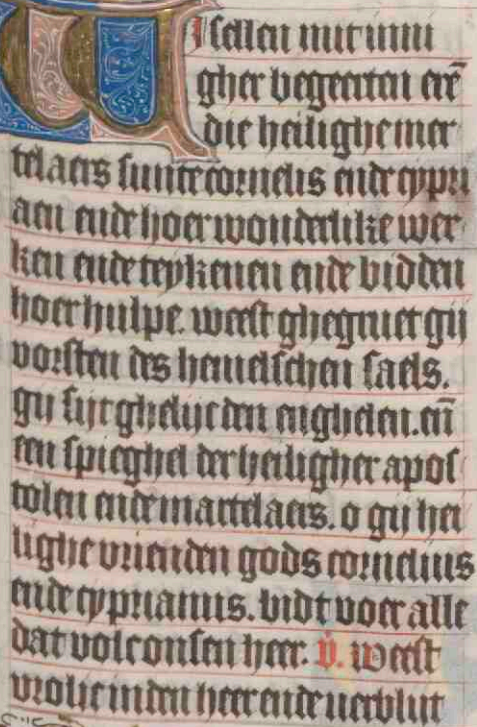 WI sellen mit inni
gher begerten erē
die heilighe mer
telaers sunte cornelis ende cypri
aen ende hoer wonderlike wer
ken ende teykenen ende bidden
hoer hulpe. weest ghegruet gij
vorsten des hemelschen saels.
gij sijt ghelijc den enghelen. eñ
een spieghel der heiligher apos
tolen ende martelaers. o gij hei
lighe vrienden gods cornelius
ende cyprianus. bidt voer alle
dat volc onsen heer. v̉. weest
vrolic inden heer ende verblijt